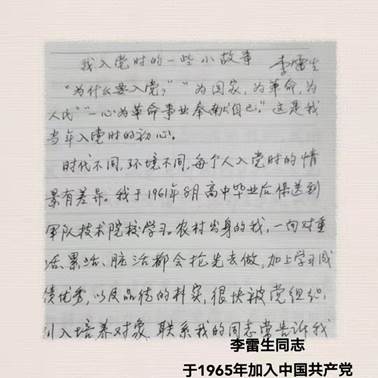 我入党时的一些小故事 李雷生
“为什么要入党？”“为国家，为革命，为
人民”“一心为革命事业奉献自己。”这是我
当年入党时的初心。
时代不同，环境不同，每个人入党时的情
景有差异。我于1961年8月高中毕业后保送到
军队技术院校学习。农村出身的我，一向对重
活、累活、脏活都会抢先去做，加上学习成
绩优秀，以及品德的朴实，很快被党组织
列入培养对象。联系我的同志常告诉我
李雷生同志
于1965年加入中国共产党